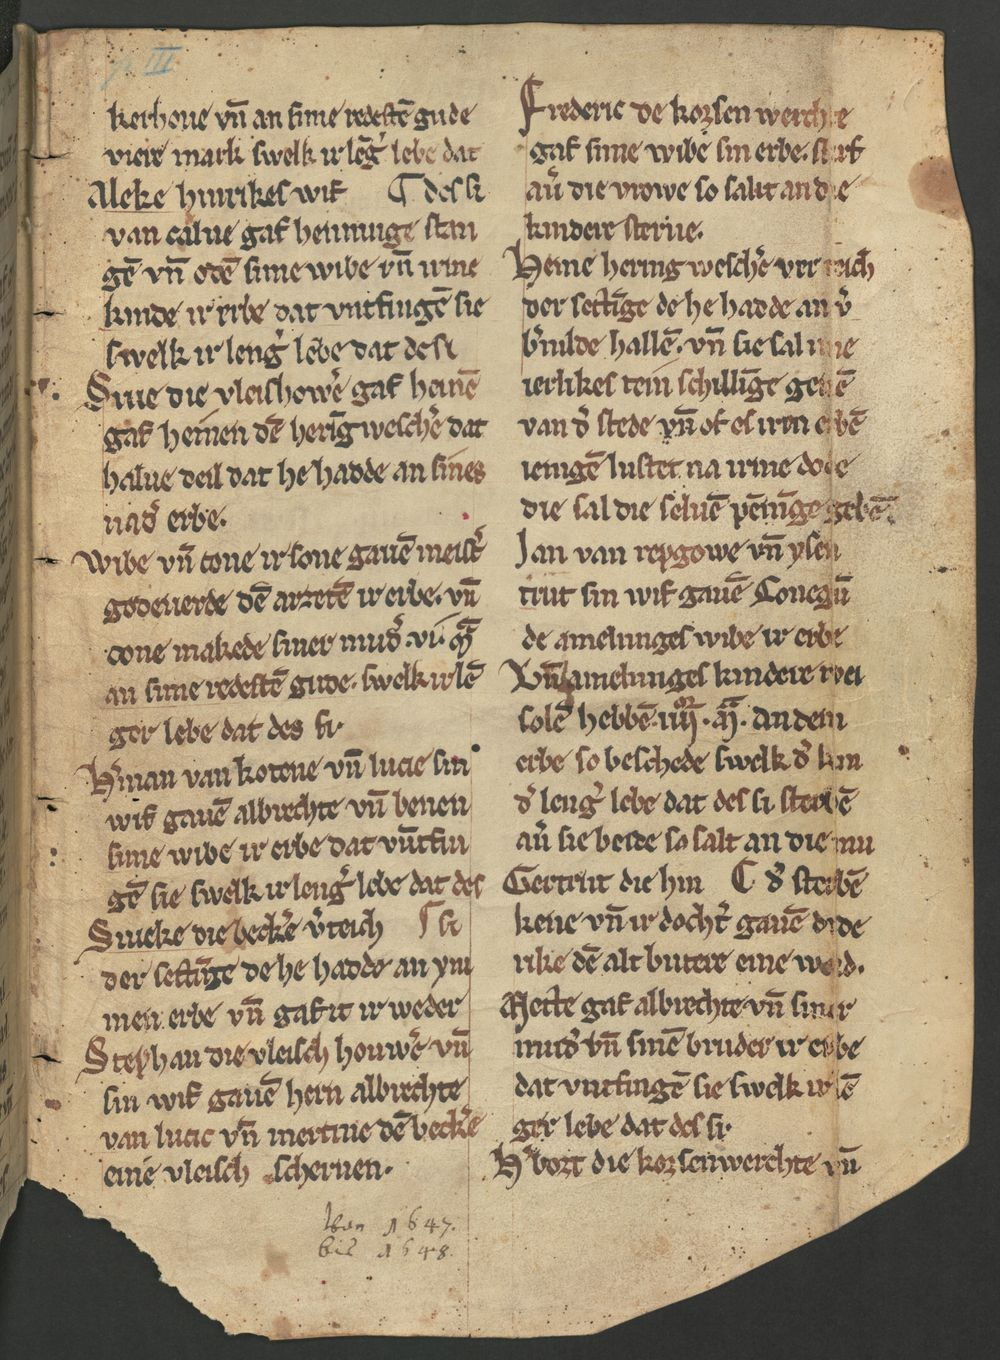 III
kerhoue vn̄ an sime redestē gude
viere mark swelk ir lēg̉ lebe dat
Aleke hinrikes wif ¶ des si
van calue gaf henninge stan
gē vn̄ odē sime wibe vn̄ irme
kinde ir erbe dat vntfingē sie
swelk ir leng̉ lebe dat de si
Sine die vleishowē gaf heinē
gaf heinen dē herīgweschē dat
halue deil dat he hadde an sines
nad̉ erbe.
Wibe vn̄ cone ir sone gauē meist̉
godeuerde dē arzetē ir erbe. vn̄
cone makede siner mud̉ .vi. m̄
an sime redestē gude. swelk ir lē
ger lebe dat des si.
H̉man van kotene vn̄ lucie sin
wif gauē albrechte vn̄ benen
sime wibe ir erbe dat vn̄tfin
gē sie swelk ir leng̉ lebe dat des
Snieke die beckē v̉teich ¶ si
der settīge de he hadde an ym
men erbe vn̄ gaf it ir weder
Stephan die vleisch houwē vn̄
sin wif gauē hern albrechte
van lucie vn̄ mertine dē beckē
eine vleisch schernen.
Von 1647.
bis 1648.
Frederic de korsenwerchte
gaf sime wibe sin erbe. sterf
au̓ die vrowe so salit an die
kindere sterue.
Heine heringweschē ver teich
der settīge de he hadde an v̓
b̓nilde hallē. vn̄ sie sal ime
ierlikes tein schillīge geuē
van d̓ stede vn̄ of es iren erbē
ienigē lustet na irme dode
die sal die seluē pēnīge gebē.
Jan van repgowe vn̄ ysen
trut sin wif gauē Conegū
de amelunges wibe ir erbe
Vn̄ amelunges kindere twei
solē hebbē .iiij. m̄. an dem
erbe so beschede swelk d̓ kin
d̓ leng̉ lebe dat des si sterbē
au̓ sie beide so salt an die mu
Gertrut die hin ¶ d̓ sterbē
kene vn̄ ir docht̉ gauē dide
rike dē alt butere eine word.
Mette gaf albrechte vn̄ siner
mud̉ vn̄ sinē bruder ir erbe
dat vntfingē sie swelk ir lē
ger lebe dat des si.
H̓bort die korsenwerchte vn̄